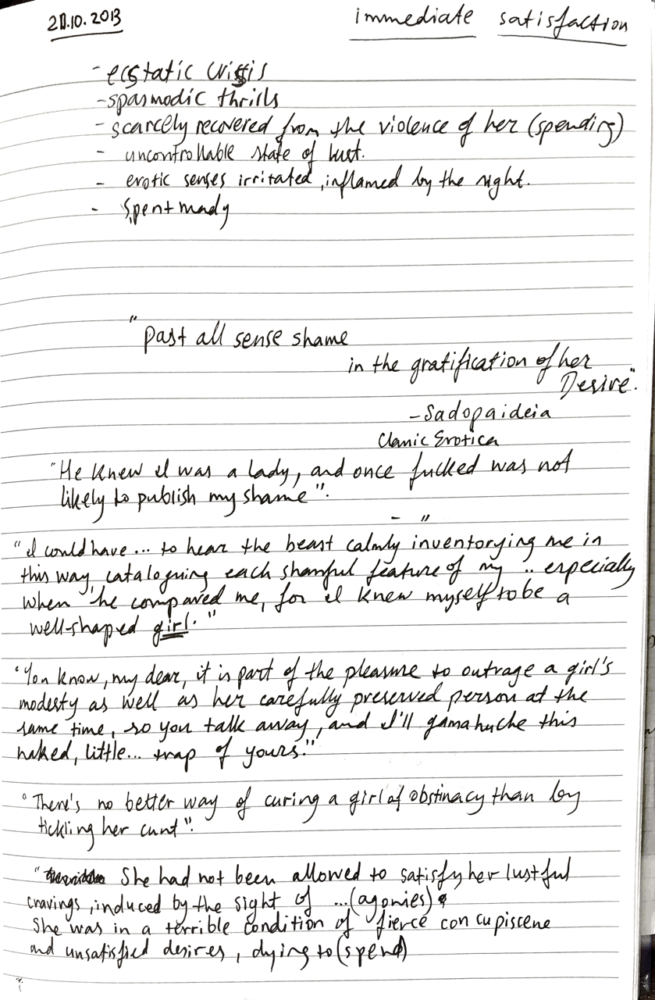 21.10.2013
immediate satisfaction
- ecstatic crisis
- spasmodic thrills
- scarcely recovered from the violence of her (spending)
- uncontrollable state of lust.
- erotic senses irritated, inflamed by the sight.
- spent mady
"Past all sense shame
in the gratification of her
Desire".
- Sadopaideia
Classic Erotica
"He knew I was a lady, and once fucked was not
likely to publish my shame".
- "
"I could have... to hear the beast calmly inventorying me in
this way, cataloguing each shameful feature of my .. especially
when he compared me, for I knew myself to be a
well-shaped girl."
"You know, my dear, it is part of the pleasure to outrage a girl's
modesty as well as her carefully preserved person at the
same time, so you talk away, and I'll gamahuche this
naked, little... trap of yours."
"There's no better way of curing a girl of obstinacy than by
tickling her cunt".
" She had not been allowed to satisfy her lustful
cravings, induced by the sight of ...(agonies)
She was in a terrible condition of fierce concupiscene
and unsatisfied desires, dying to (spend)